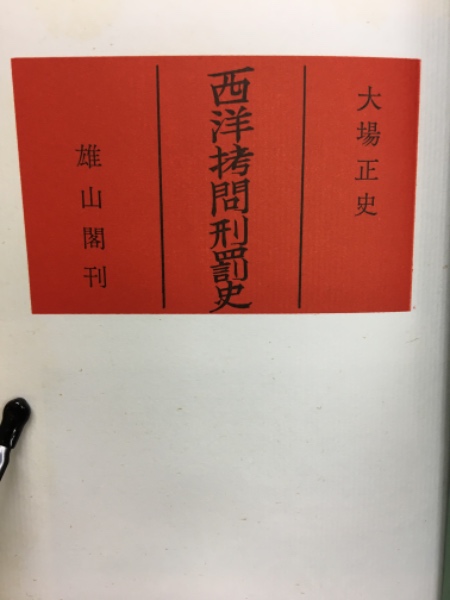 大場正史
西洋拷問刑罰史
雄山閣刊